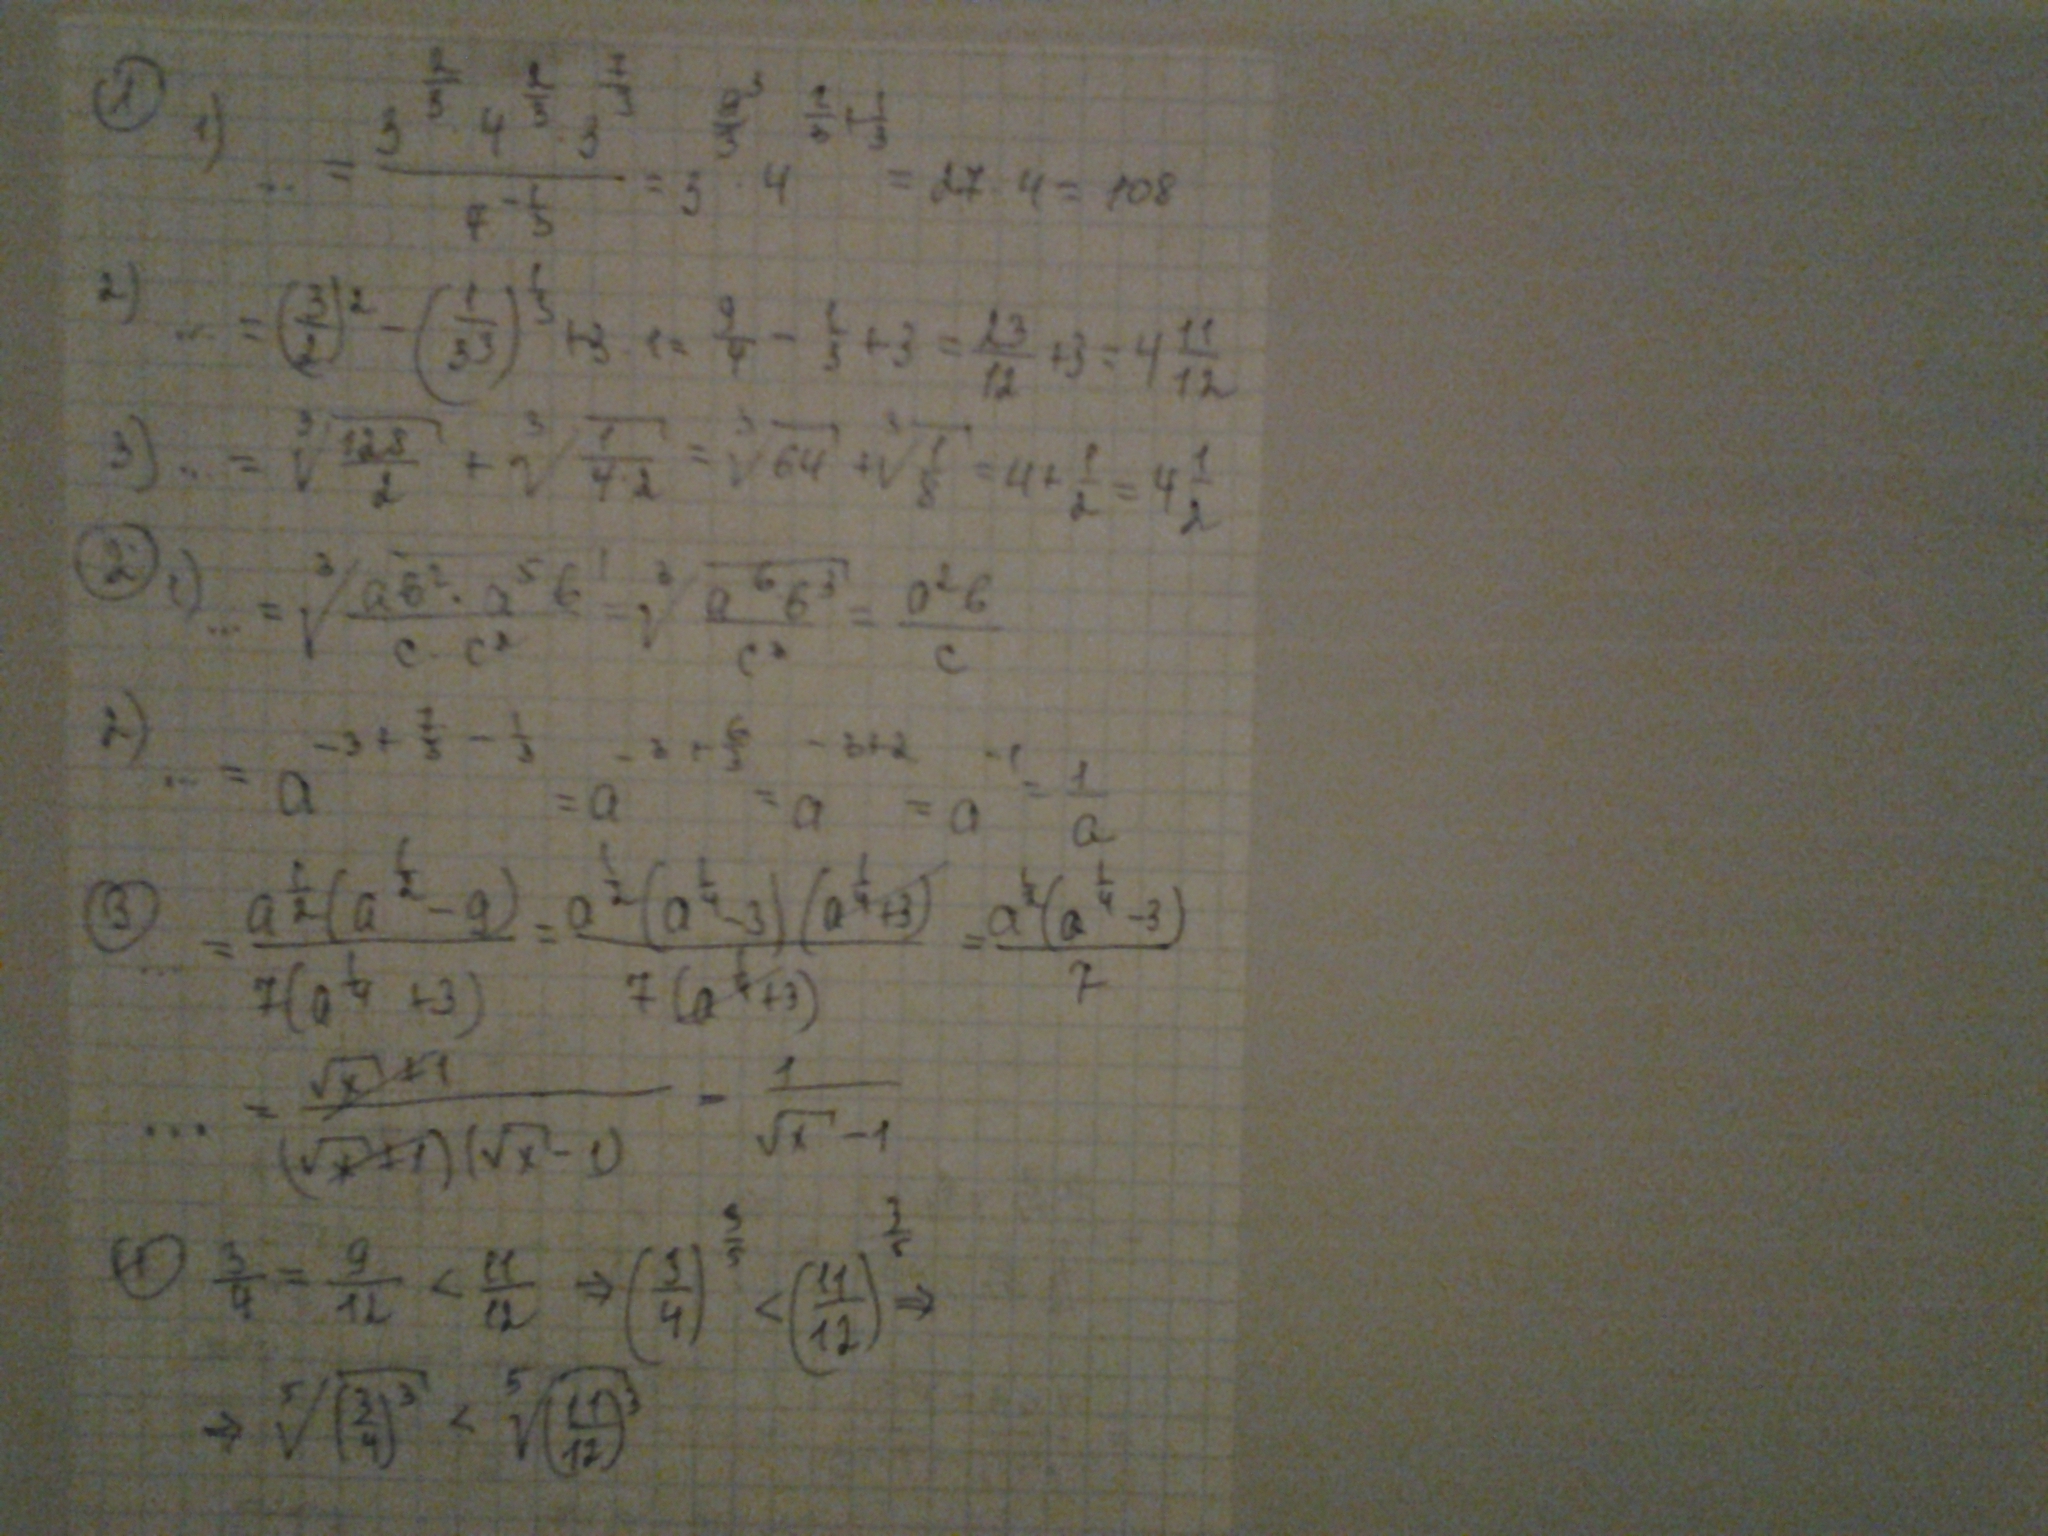 ① 1) ... = (3^(2/3) · 4^(2/3) · 3^(7/3)) / 4^(-1/3) = 3^(9/3) · 4^(2/3+1/3) = 27 · 4 = 108
2) ... = (3/2)² − (1/3³)^(1/3) + 3 · 1 = 9/4 − 1/3 + 3 = 23/12 + 3 = 4 11/12
3) ... = ∛(128/2) + ∛(1/(4·2)) = ∛64 + ∛(1/8) = 4 + 1/2 = 4 1/2
② 1) ... = ∛((aб² · a⁵б)/(c · c²)) = ∛(a⁶б³/c³) = a²б/c
2) ... = a^(−3+7/3−1/3) = a^(−3+6/3) = a^(−3+2) = a^(−1) = 1/a
③ ... = a^(1/2)(a^(1/2) − 9) / 7(a^(1/4) + 3) = a^(1/2)(a^(1/4) − 3)(a^(1/4) + 3) / 7(a^(1/4) + 3) = a^(1/2)(a^(1/4) − 3) / 7
... = (√x + 1) / (√x + 1)(√x − 1) = 1 / (√x − 1)
④ 3/4 = 9/12 < 11/12 ⇒ (3/4)^(3/5) < (11/12)^(3/5) ⇒
⇒ ⁵√(3/4)³ < ⁵√(11/12)³